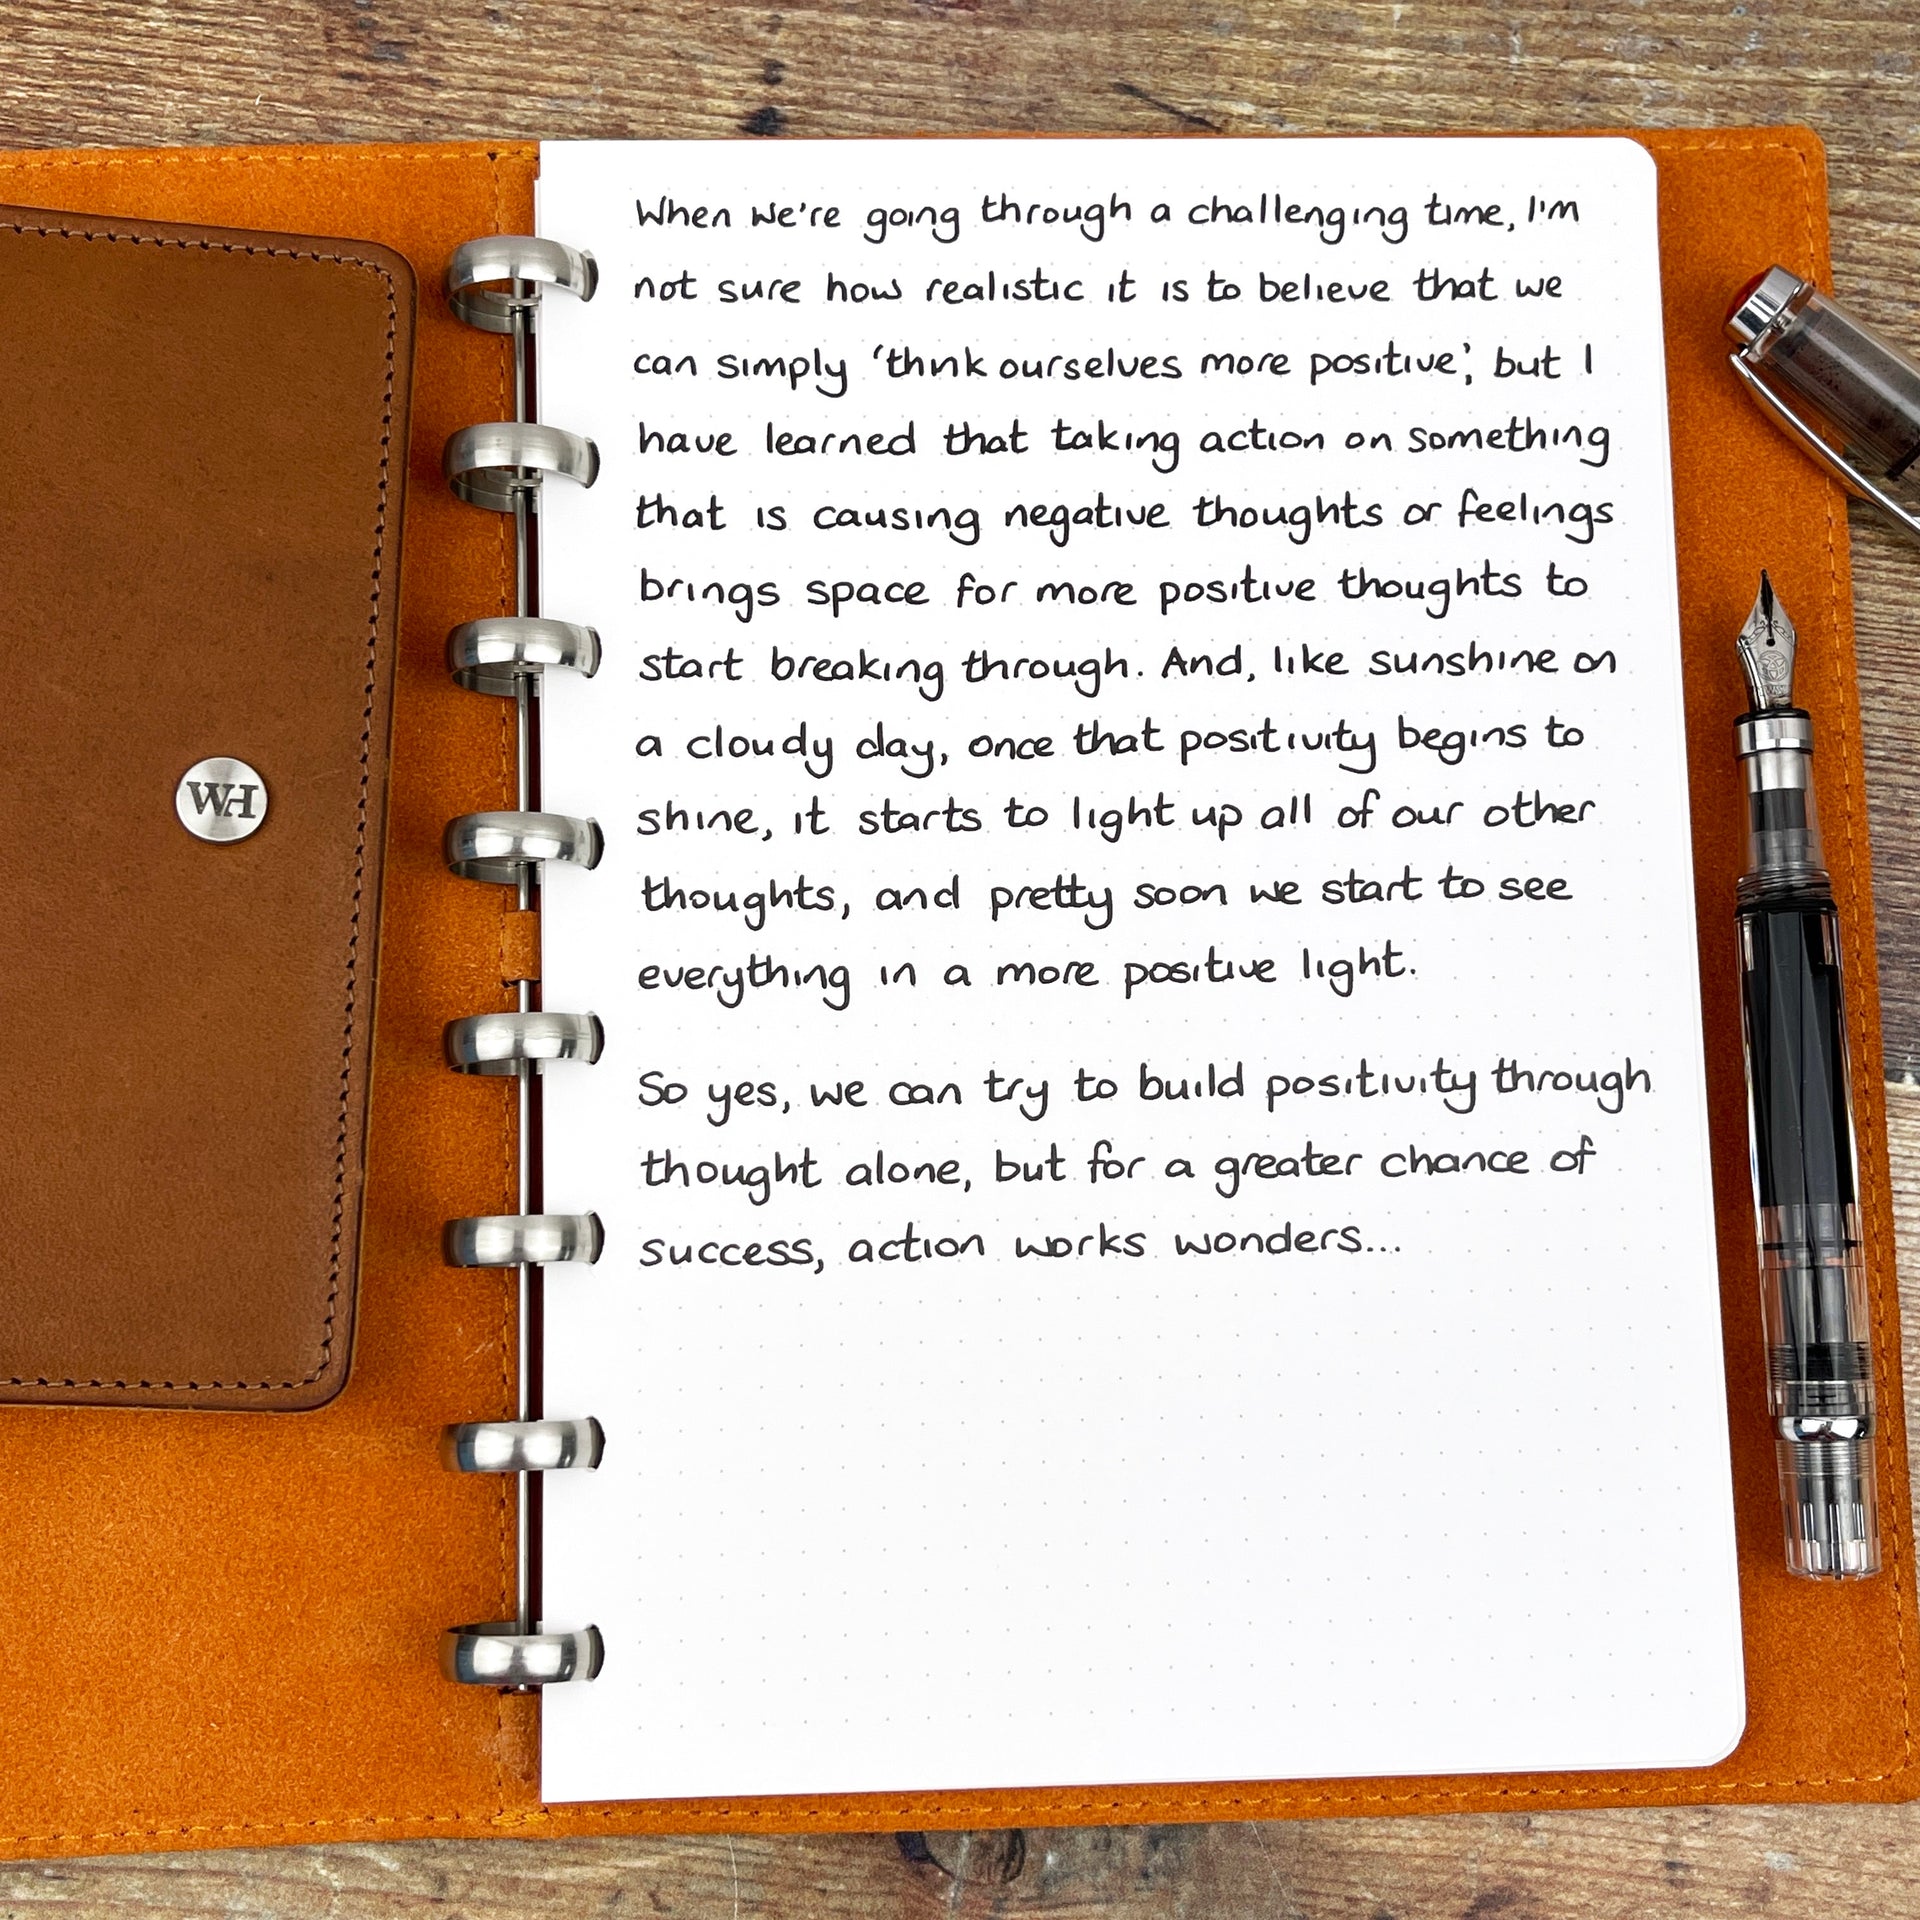 When we're going through a challenging time, I'm
not sure how realistic it is to believe that we
can simply 'think ourselves more positive', but I
have learned that taking action on something
that is causing negative thoughts or feelings
brings space for more positive thoughts to
start breaking through. And, like sunshine on
a cloudy day, once that positivity begins to
shine, it starts to light up all of our other
thoughts, and pretty soon we start to see
everything in a more positive light.
So yes, we can try to build positivity through
thought alone, but for a greater chance of
success, action works wonders...
WH